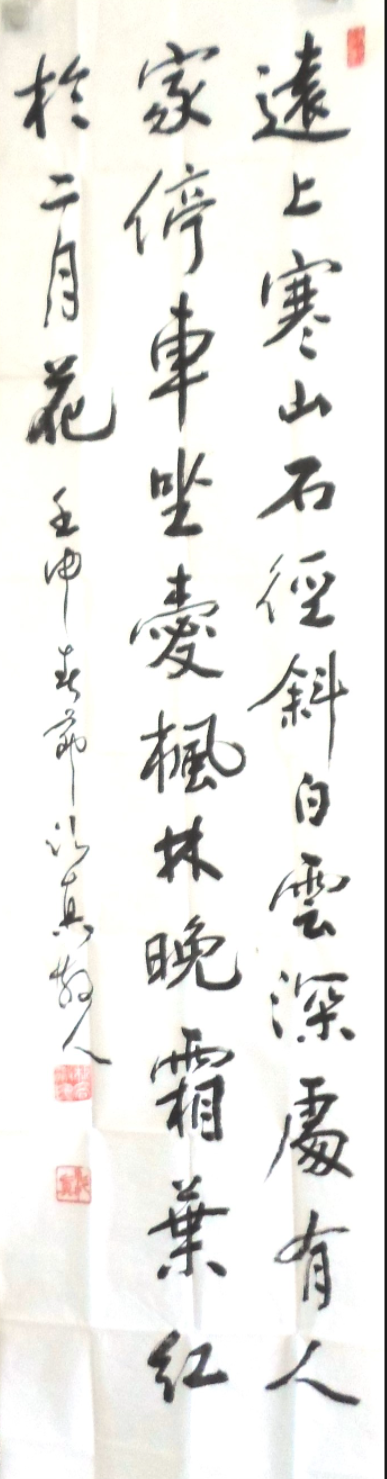 遠上寒山石徑斜白雲深處有人
家停車坐愛楓林晚霜葉紅
於二月花
壬申春節訪真散人